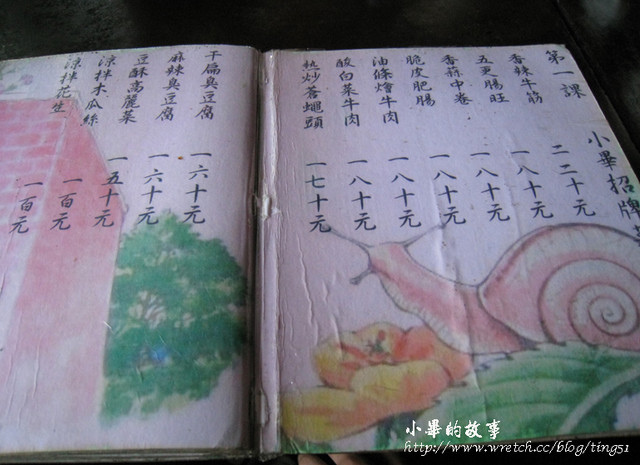 第一課
小畢招牌
香辣牛筋 二二十元
五更腸旺 一八十元
香蒜中卷 一八十元
脆皮肥腸 一八十元
油條燴牛肉 一八十元
酸白菜牛肉 一八十元
热炒蒼蠅頭 一七十元
干扁臭豆腐 一六十元
麻辣臭豆腐 一六十元
豆酥高麗菜 一五十元
涼拌木瓜絲 一百元
涼拌花生 一百元
小畢的故事
http://www.wretch.cc/blog/ting51